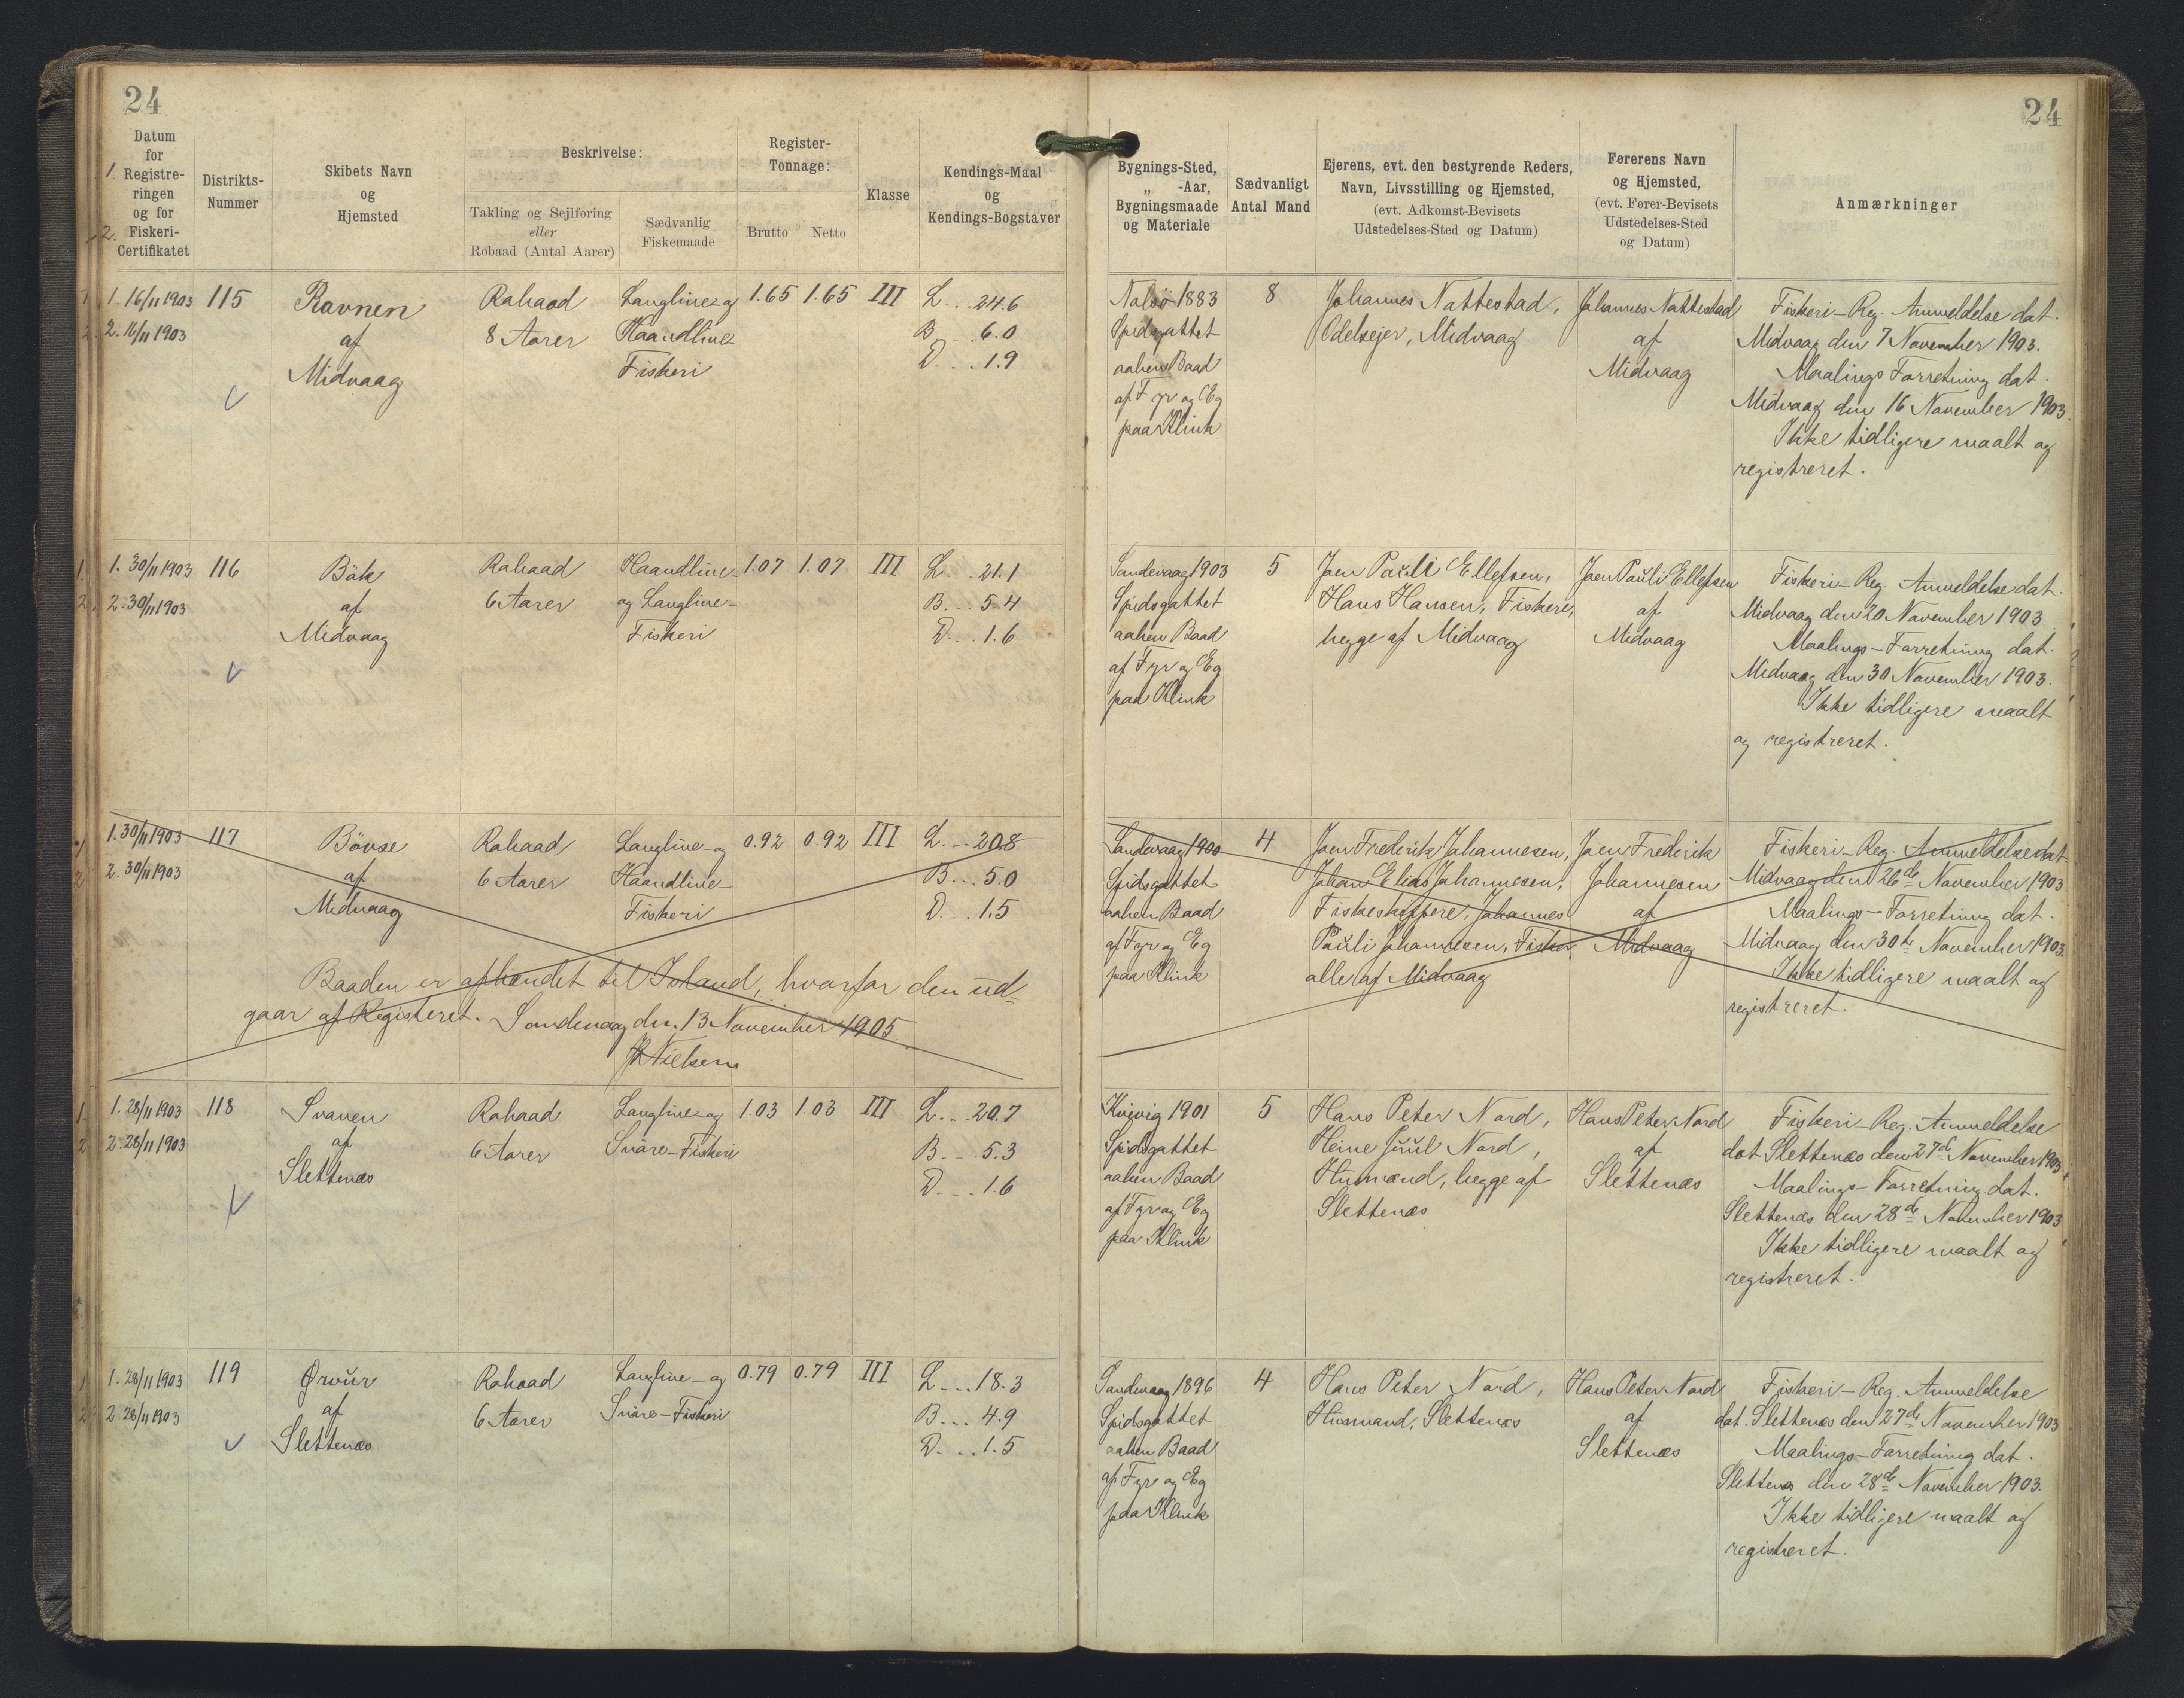 24
24
Datum
for
1. Registre-
ringen
og for
2. Fiskeri-
Certifikatet
Distrikts-
Nummer
Skibets Navn
og
Hjemsted
Beskrivelse:
Takling og Sejlføring
eller
Robaad (Antal Aarer)
Sædvanlig
Fiskemaade
Register-
Tonnage:
Brutto
Netto
Klasse
Kendings-Maal
og
Kendings-Bogstaver
Bygnings-Sted,
„ -Aar,
Bygningsmaade
og Materiale
Sædvanligt
Antal Mand
Ejerens, evt. den bestyrende Reders,
Navn, Livsstilling og Hjemsted,
(evt. Adkomst-Bevisets
Udstedelses-Sted og Datum)
Førerens Navn
og Hjemsted,
(evt. Fører-Bevisets
Udstedelses-Sted
og Datum)
Anmærkninger
1. 16/11 1903
2. 16/11 1903
115
Ravnen
af
Midvaag
Robaad
8 Aarer
Langline- og
Haandline-
Fiskeri
1.65
1.65
III
L... 24.6
B... 6.0
D... 1.9
Nolsö 1883
Spidsgattet
aaben Baad
af Fyr og Eg
paa Klink
8
Johannes Nattestad,
Odelsejer, Midvaag
Johannes Nattestad
af
Midvaag
Fiskeri-Reg. Anmeldelse dat.
Midvaag den 7 November 1903.
Maalings Forretning dat.
Midvaag den 16 November 1903.
Ikke tidligere maalt og
registreret.
1. 30/11 1903
2. 30/11 1903
116
Bák
af
Midvaag
Robaad
6 Aarer
Haandline-
og Langline-
Fiskeri
1.07
1.07
III
L... 21.1
B... 5.4
D... 1.6
Sandevaag 1903
Spidsgattet
aaben Baad
af Fyr og Eg
paa Klink
5
Joen Pauli Ellefsen,
Hans Hansen, Fiskere,
begge af Midvaag
Joen Pauli Ellefsen
af
Midvaag
Fiskeri-Reg. Anmeldelse dat.
Midvaag den 20 November 1903
Maalings-Forretning dat.
Midvaag den 30 November 1903.
Ikke tidligere maalt
og registreret.
1. 30/11 1903
2. 30/11 1903
117
Bövse
af
Midvaag
Robaad
6 Aarer
Langline- og
Haandline-
Fiskeri
0.92
0.92
III
L... 20.8
B... 5.0
D... 1.5
Sandevaag 1900
Spidsgattet
aaben Baad
af Fyr og Eg
paa Klink
4
Joen Frederik Johannesen,
Johan Elias Johannesen,
Fiskeskippere, Johannes
Pauli Johannesen, Fisker,
alle af Midvaag
Joen Frederik
Johannesen
af
Midvaag
Fiskeri-Reg. Anmeldelse dat
Midvaag den 26de November 1903
Maalings-Forretning dat.
Midvaag den 30te November 1903.
Ikke tidligere maalt og
registreret.
Baaden er afhændet til Island, hvorfor den ud-
gaar af Registeret. Sandevaag den 13 November 1905
Nielsen
1. 28/11 1903
2. 28/11 1903
118
Svanen
af
Slettenæs
Robaad
6 Aarer
Langline- og
Snöre-Fiskeri
1.03
1.03
III
L... 20.7
B... 5.3
D... 1.6
Kvivig 1901
Spidsgattet
aaben Baad
af Fyr og Eg
paa Klink
5
Hans Peter Nord,
Heine Juul Nord,
Husmænd, begge af
Slettenæs
Hans Peter Nord
af
Slettenæs
Fiskeri-Reg. Anmeldelse
dat Slettenæs den 27de November 1903
Maalings-Forretning dat.
Slettenæs den 28de November 1903
Ikke tidligere maalt og
registreret.
1. 28/11 1903
2. 28/11 1903
119
Ørvur
af
Slettenæs
Robaad
6 Aarer
Langline- og
Snöre-Fiskeri
0.79
0.79
III
L... 18.3
B... 4.9
D... 1.5
Sandevaag 1896
Spidsgattet
aaben Baad
af Fyr og Eg
paa Klink
4
Hans Peter Nord,
Husmand, Slettenæs
Hans Peter Nord
af
Slettenæs
Fiskeri-Reg. Anmeldelse
dat. Slettenæs den 27de November 1903
Maalings-Forretning dat.
Slettenæs den 28de November 1903.
Ikke tidligere maalt og
registreret.